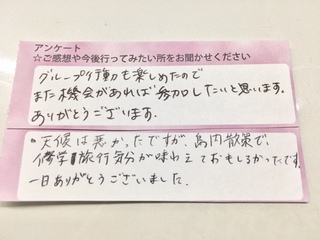 アンケート
☆ご感想や今後行ってみたい所をお聞かせください
グループ行動も楽しめたので
また機会があれば参加したいと思います。
ありがとうございます。
天候は悪かったですが、島内散策で、
修学旅行気分が味わえておもしろかったです。
一日ありがとうございました。